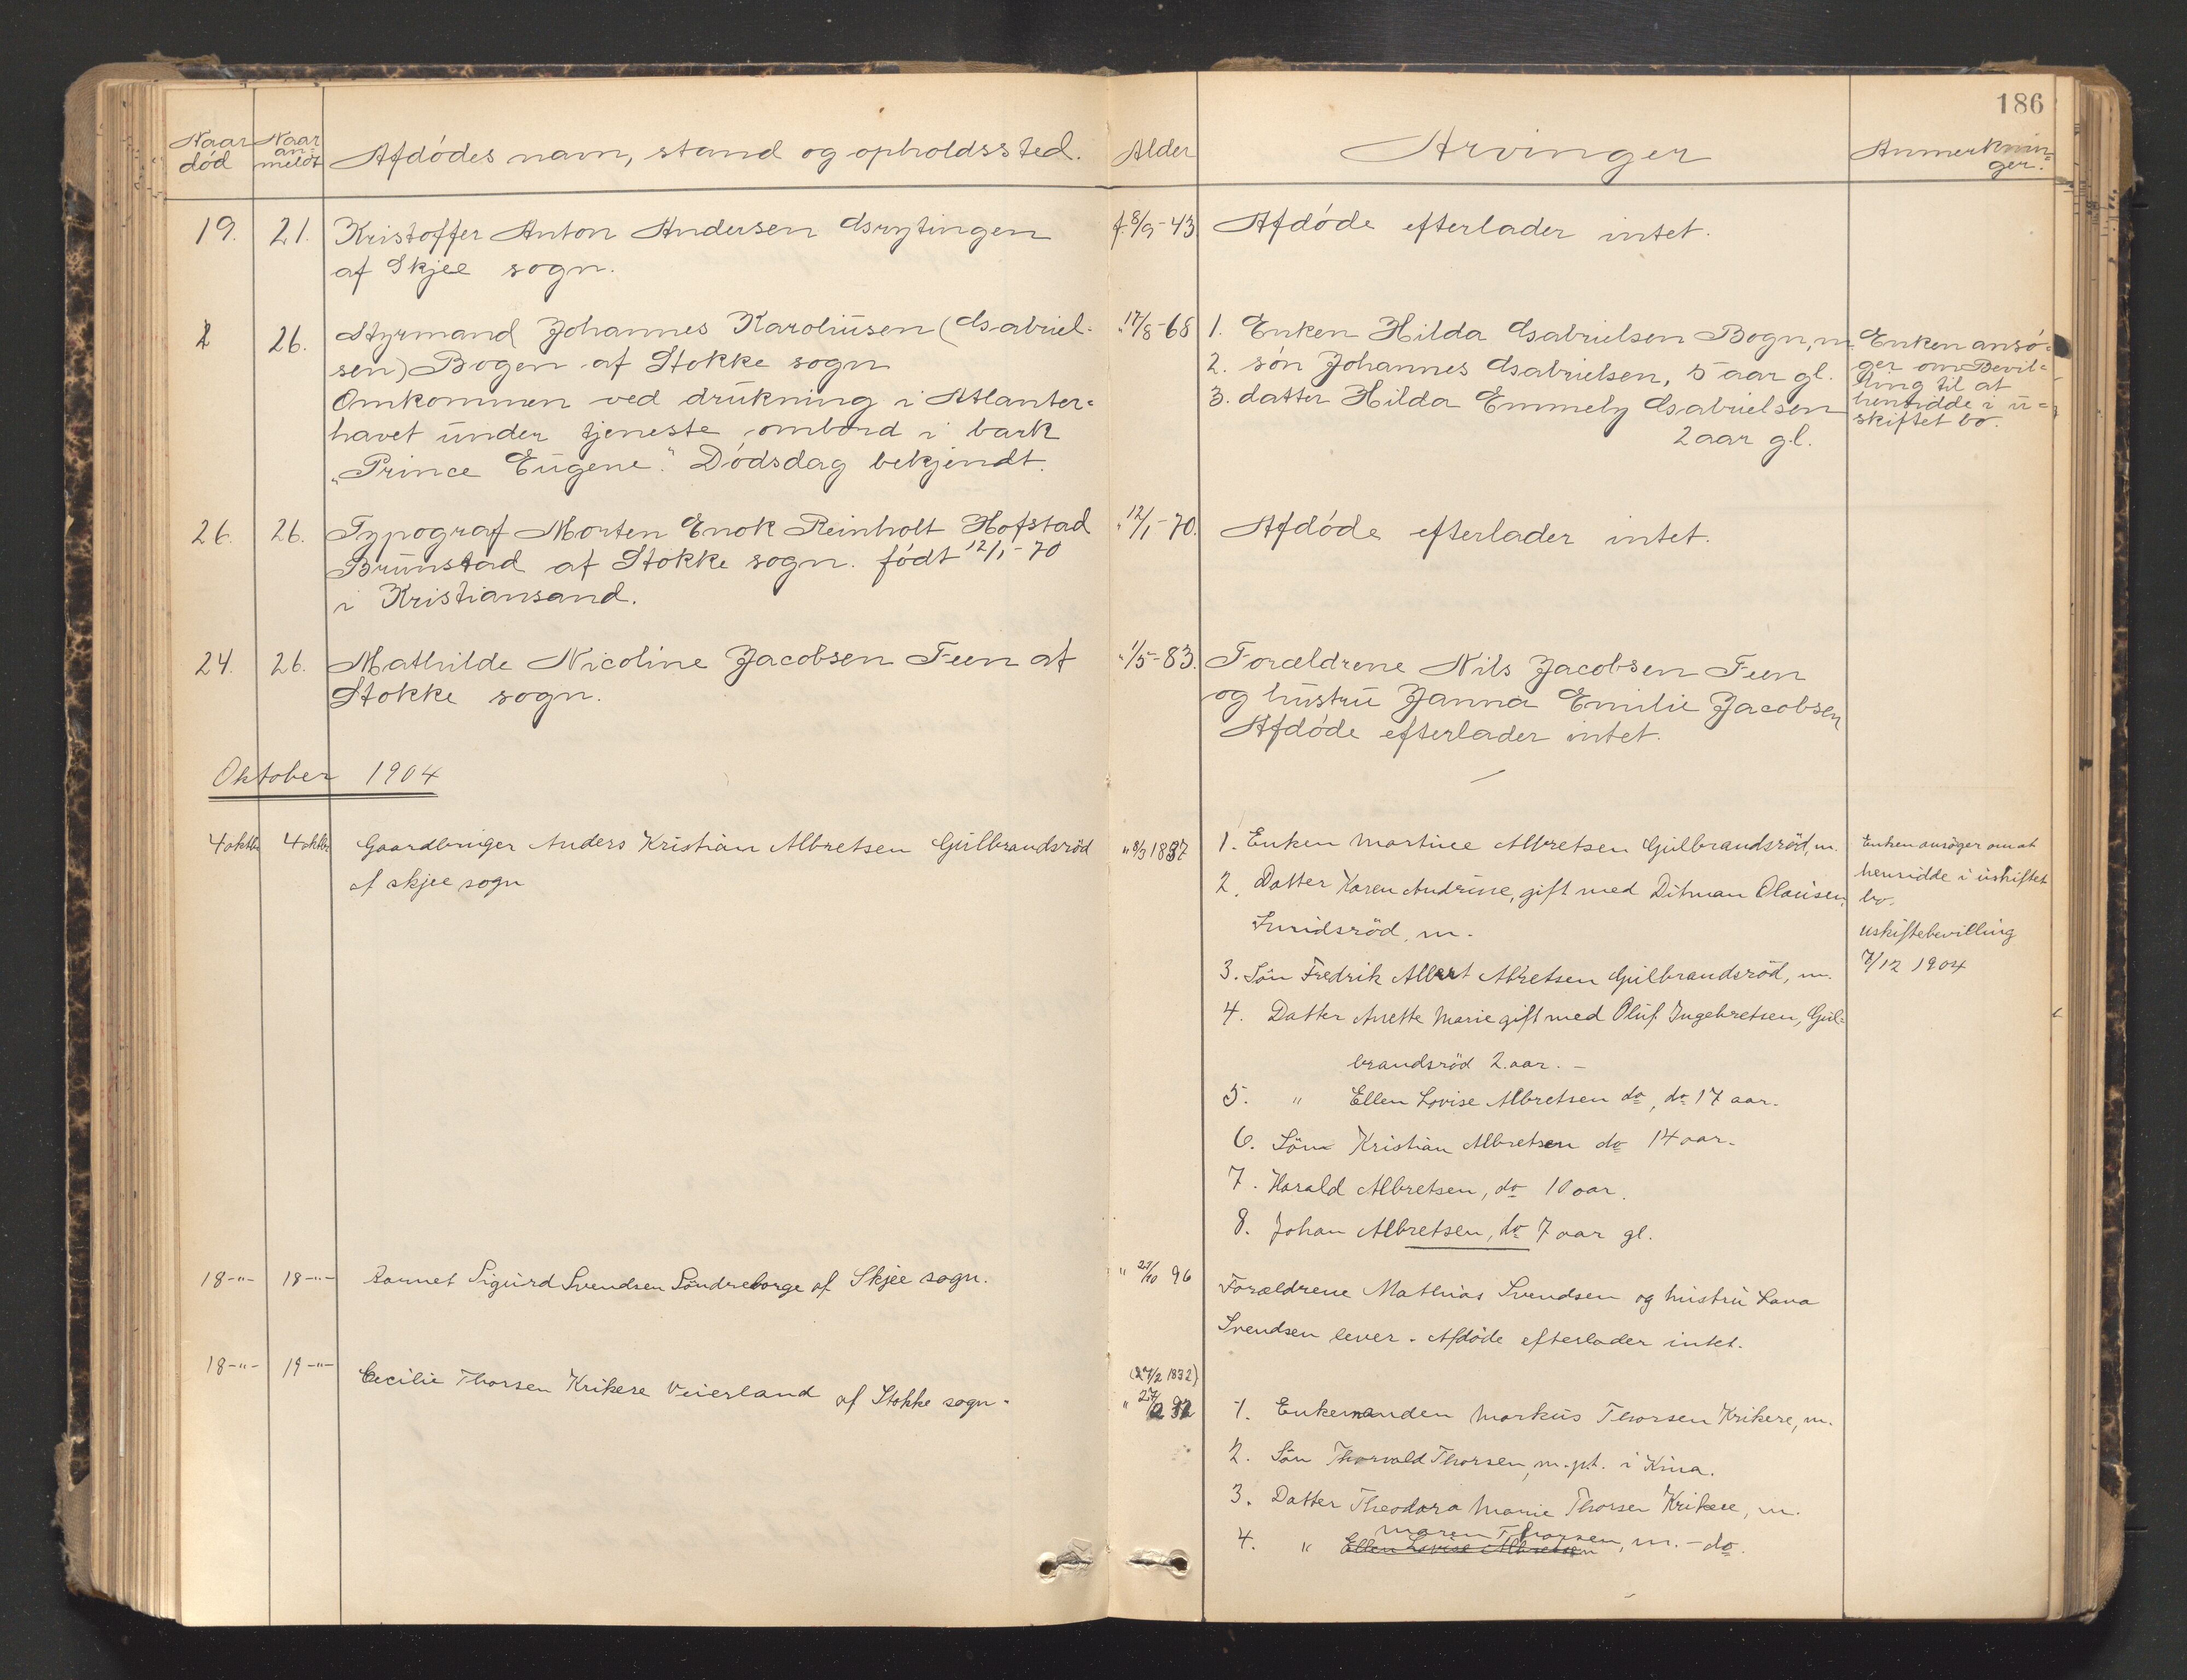 186
Naar død
Naar an- meldt
Afdødes navn, stand og opholdssted.
Alder
Arvinger
Anmerknin-
ger.
19. 21. Kristoffer Anton Andersen Grytingen
af Skjee sogn.
f. 8/9-43
Afdøde efterlader intet.
2 26. Styrmand Johannes Karoliusen (Gabriel-
sen) Bogen af Stokke sogn
Omkommen ved drukning i Atlanter-
havet under tjeneste ombord i bark
"Prince Eugene". Dødsdag bekjendt.
" 17/8-68
1. Enken Hilda Gabrielsen Bogn, m.
2. søn Johannes Gabrielsen, 5 aar gl.
3. datter Hilda Emmely Gabrielsen
2 aar gl.
Enken ansø-
ger om Bevil-
ling til at
hensidde i u-
skiftet bo.
26. 26. Typograf Morten Enok Reinholt Hofstad
Brunstad af Stokke sogn. født 12/1-70
i Kristiansand.
" 12/1-70.
Afdøde efterlader intet.
24. 26. Mathilde Nicoline Jacobsen Feen af
Stokke sogn.
" 1/5-83.
Forældrene Nils Jacobsen Feen
og hustru Janna Emilie Jacobsen
Afdøde efterlader intet.
Oktober 1904
4 oktbr 4 oktbr Gaardbruger Anders Kristian Albretsen Gulbrandsröd
af skjee sogn
" 8/3 1837
1. Enken Martine Albretsen Gulbrandsröd, m.
2. Datter Karen Andrine, gift med Ditman Olausen,
m.
3. Sön Fredrik Albert Albretsen Gulbrandsröd, m.
4. Datter Anette Marie gift med Oluf Ingebretsen, Gul-
brandsröd 2. aar. -
5. " Ellen Lovise Albretsen do, do 17 aar.
6. Sön Kristian Albretsen do 14 aar.
7. Harald Albretsen, do 10 aar.
8. Johan Albretsen, do 7 aar gl.
Enken ansöger om at
hensidde i uskiftet
bo.
uskiftebevilling
7/12 1904
18-"- 18-"- Barnet Sigurd Svendsen Söndreborge af Skjee sogn.
" 23/10 96
Forældrene Mathias Svendsen og hustru Lava
Svendsen lever. Afdöde efterlader intet.
18-"- 19-"- Cecilie Thorsen Krikere Veierland af Stokke sogn.
(27/2 1832)
" 27/2 32
1. Enkemanden Markus Thorsen Krikere, m.
2. Sön Thorvald Thorsen, m. pt. i Kina.
3. Datter Theodora Marie Thorsen Krikere, m.
Maren Thorsen
4. " Ellen Lovise Albretsen, m. - do.